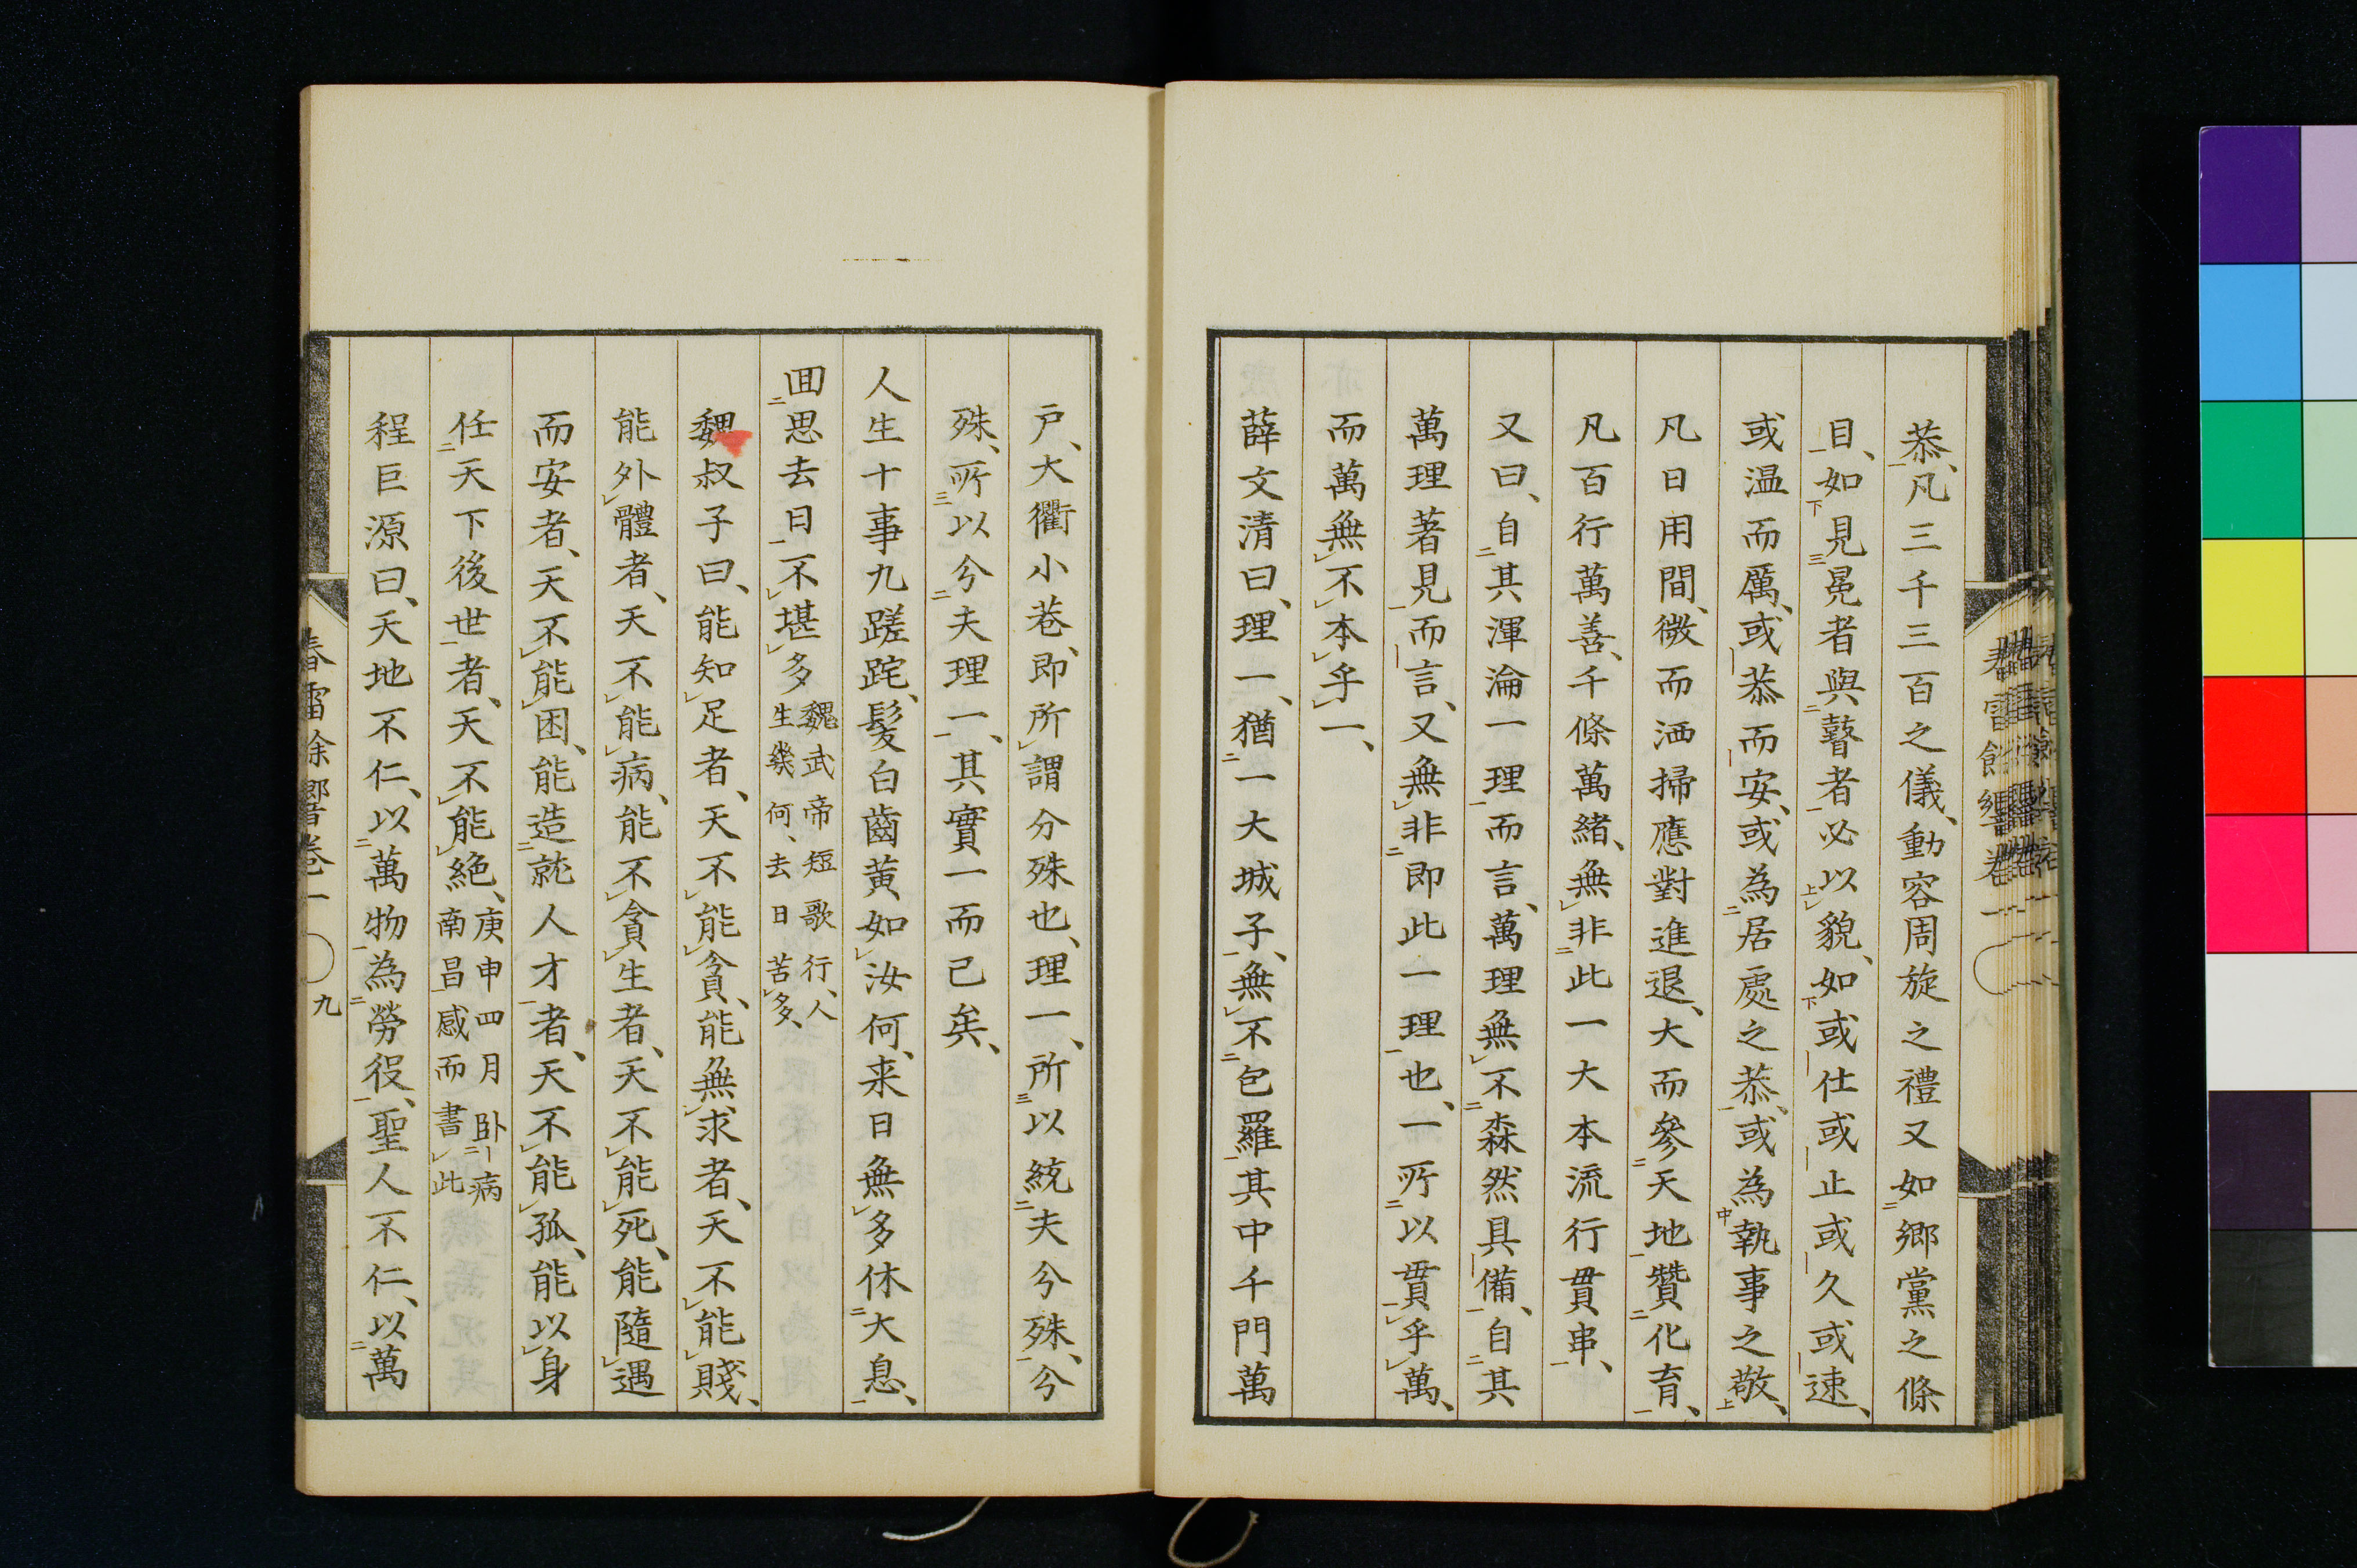 恭、凡三千三百之儀、動容周旋之禮又如鄉黨之條
目、如見冕者與瞽者必以貌、如或仕或止或久或速、
或温而厲、或恭而安、或為居處之恭、或為執事之敬、
凡日用間、微而洒掃應對進退、大而參天地贊化育、
凡百行萬善、千條萬緒、無非此一大本流行貫串、
又曰、自其渾淪一理而言、萬理無不森然具備、自其
萬理著見而言、又無非即此一理也、一所以貫乎萬、
而萬無不本乎一、
薛文清曰、理一、猶一大城子、無不包羅其中千門萬
戶、大衢小巷、即所謂分殊也、理一、所以統夫分殊、分
殊、所以分夫理一、其實一而已矣、
人生十事九蹉跎、髮白齒黃如汝何、来日無多休大息、
回思去日不堪多魏武帝短歌行、人生幾何、去日苦多、
魏叔子曰、能知足者、天不能貧、能無求者、天不能賤、
能外體者、天不能病、能不貪生者、天不能死、能隨遇
而安者、天不能困、能造就人才者、天不能孤、能以身
任天下後世者、天不能絕、庚申四月卧病南昌感而書此
程巨源曰、天地不仁、以萬物為勞役、聖人不仁、以萬
春雷餘響卷一
九